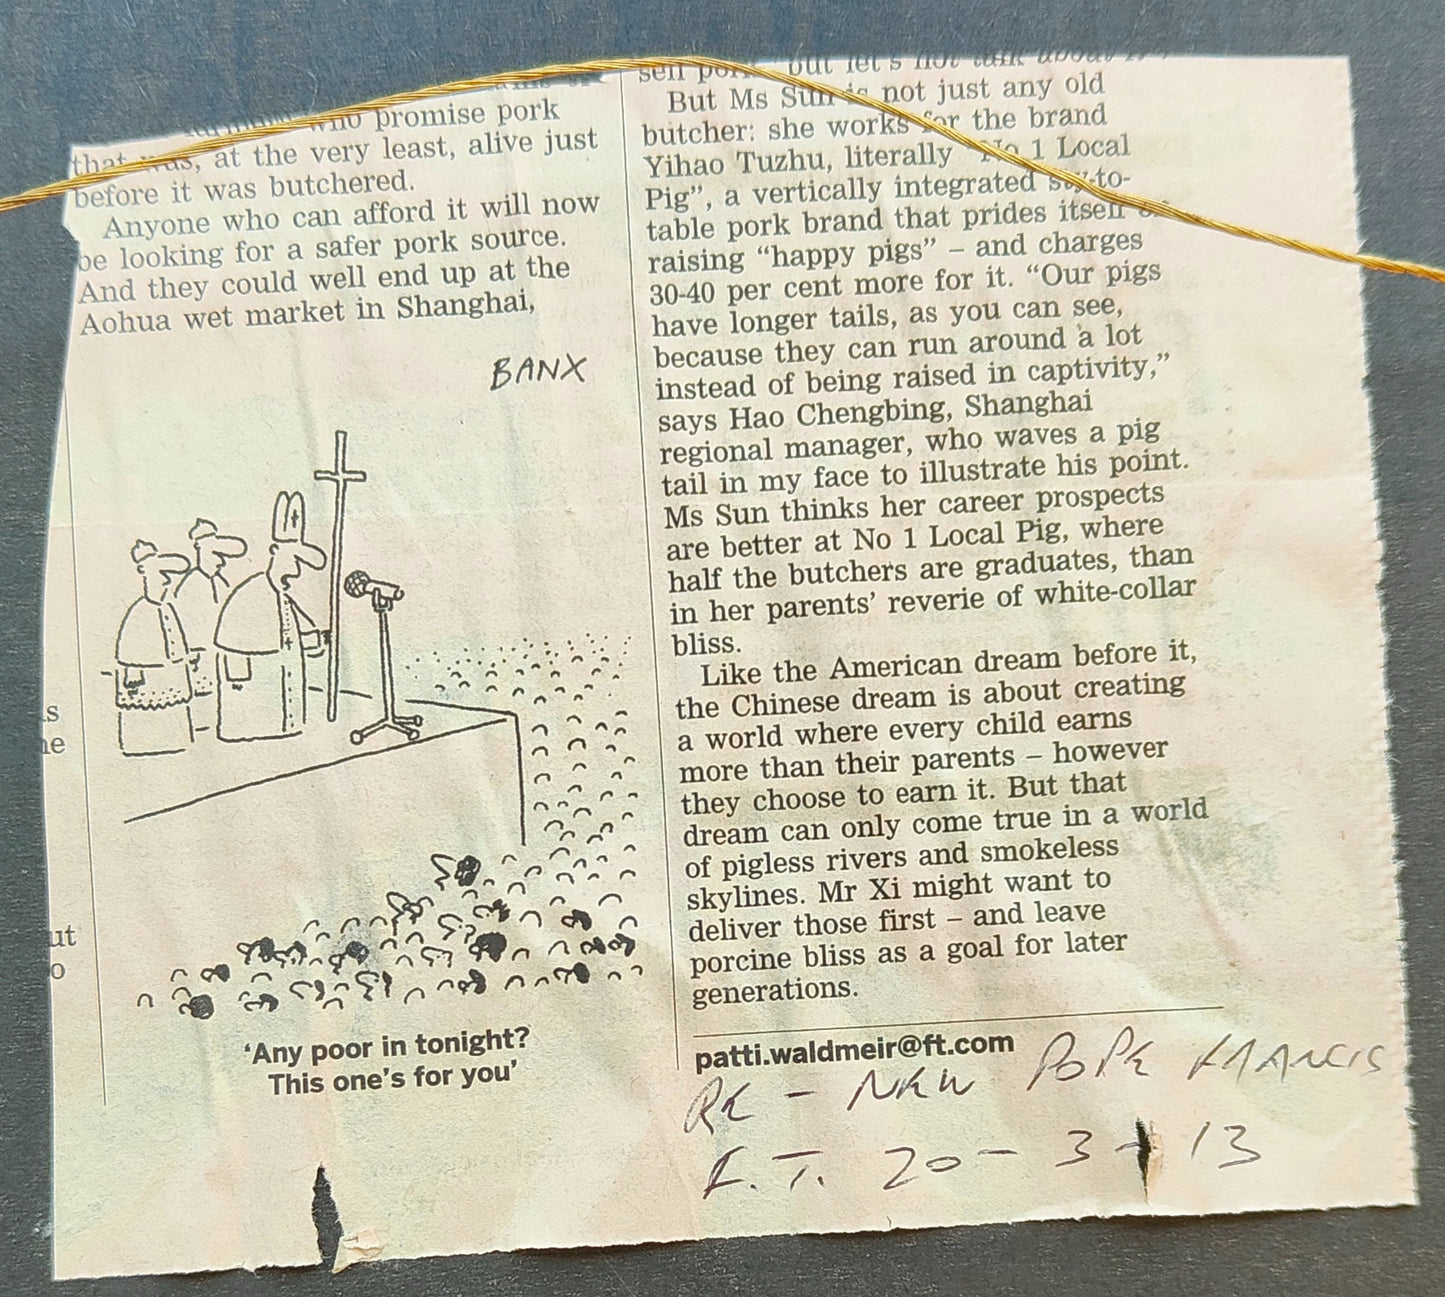 who promise pork
that was, at the very least, alive just
before it was butchered.
Anyone who can afford it will now
be looking for a safer pork source.
And they could well end up at the
Aohua wet market in Shanghai,
BANX
‘Any poor in tonight?
This one’s for you’
s
ut
o
sell but let’s not talk about
But Ms Sun is not just any old
butcher: she works for the brand
Yihao Tuzhu, literally “No 1 Local
Pig”, a vertically integrated sty-to-
table pork brand that prides itself on
raising “happy pigs” – and charges
30-40 per cent more for it. “Our pigs
have longer tails, as you can see,
because they can run around a lot
instead of being raised in captivity,”
says Hao Chengbing, Shanghai
regional manager, who waves a pig
tail in my face to illustrate his point.
Ms Sun thinks her career prospects
are better at No 1 Local Pig, where
half the butchers are graduates, than
in her parents’ reverie of white-collar
bliss.
Like the American dream before it,
the Chinese dream is about creating
a world where every child earns
more than their parents – however
they choose to earn it. But that
dream can only come true in a world
of pigless rivers and smokeless
skylines. Mr Xi might want to
deliver those first – and leave
porcine bliss as a goal for later
generations.
patti.waldmeir@ft.com
RE – NEW POPE FRANCIS
F.T. 20-3-13